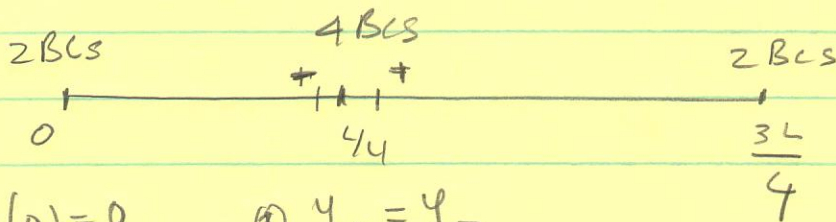 4 BCS
2 BCS 2 BCS
+ +
0 L/4 3L
4
(0) = 0 @ y = y -